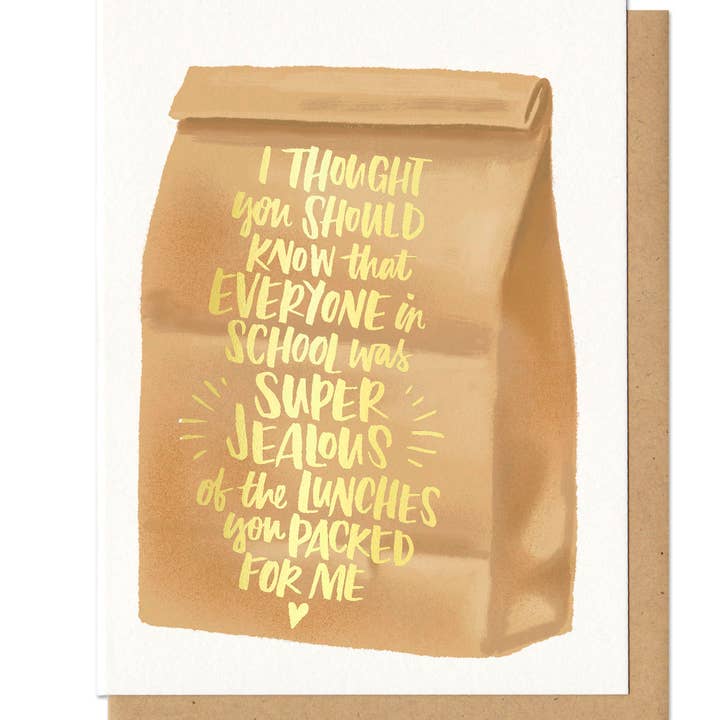 I THOUGHT
you SHOULD
KNOW that
EVERYONE in
SCHOOL was
SUPER
JEALOUS
of the LUNCHES
you PACKED
FOR ME